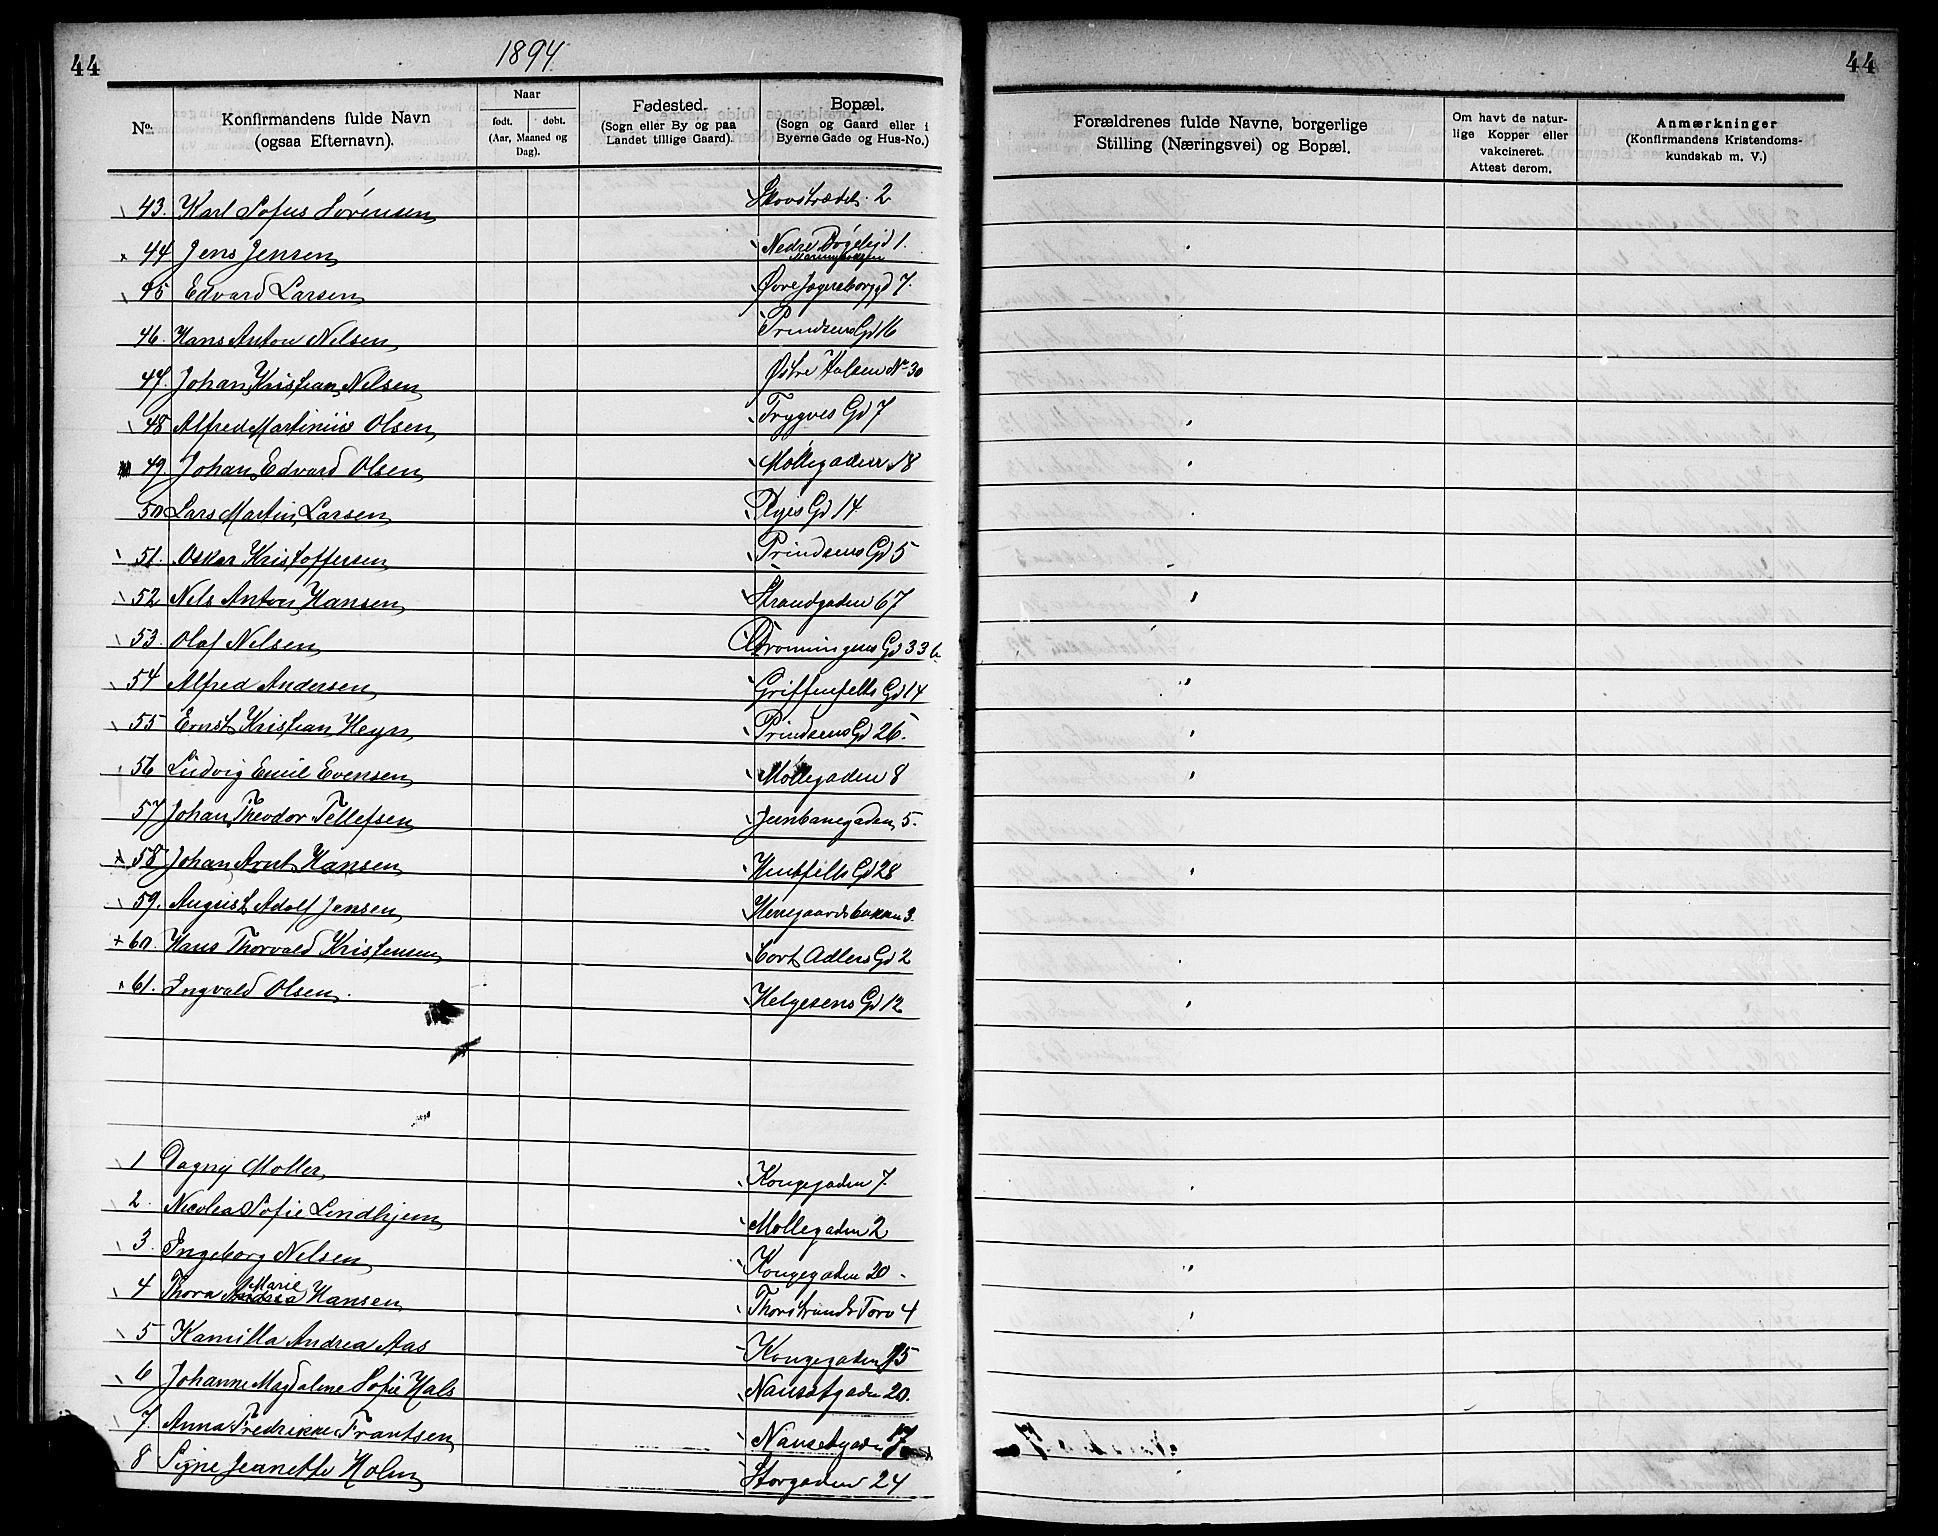 44
1894.
44
No.
Konfirmandens fulde Navn
(ogsaa Efternavn).
Naar
født. døbt.
(Aar, Maaned og
Dag).
Fødested.
(Sogn eller By og paa
Landet tillige Gaard).
Bopæl.
(Sogn og Gaard eller i
Byerne Gade og Hus-No.)
Forældrenes fulde Navne, borgerlige
Stilling (Næringsvei) og Bopæl.
Om havt de natur-
lige Kopper eller
vakcineret.
Attest derom.
Anmærkninger
(Konfirmandens Kristendoms-
kundskab m. V.)
43. Karl Sofus Sørensen Skovstrædet. 2
44 Jens Jensen Nedre Bøgelid 1.
45 Edvard Larsen Øvre Jegersborggd 7.
46. Hans Anton Nilsen Prindsens Gd 16
47. Johan Kristian Nilsen Østre Halsen No 30
48 Alfred Martinius Olsen Trygves Gd 7
49. Johan Edvard Olsen Møllegaden 18
50 Lars Martin Larsen Ryes Gd 14
51. Oskar Kristoffersen Prindsens Gd 5
52 Nils Anton Hansen Strandgaden 67
53. Olaf Nilsen Dronningens Gd 33 b
54 Alfred Andersen Griffenfelts Gd 14
55 Ernst Kristian Heyn Prindsens Gd 26.
56 Ludvig Emil Evensen Møllegaden 8
57 Johan Theodor Tellefsen Jernbanegaden 5.
58 Johan Arnt Hansen Huitfelts Gd 28
59. August Adolf Jensen Herregaardsbakken 3.
60. Hans Thorvald Kristensen Cort Adlers Gd 2
61. Ingvald Olsen. Helgesens Gd 12
1 Dagny Møller Kongegaden 7.
2. Nicolea Sofie Lindhjem Møllegaden 2
3. Ingeborg Nilsen Kongegaden 20
Marie
4 Thora Hansen Thorstrunds Torv 4
5 Kamilla Andrea Aas Kongegaden 15
6 Johanne Magdalene Sofie Hals Nansetgaden 20.
7. Anna Fredrikke Frantsen Nansetgaden 17
8 Signe Jeanette Holm Storgaden 24